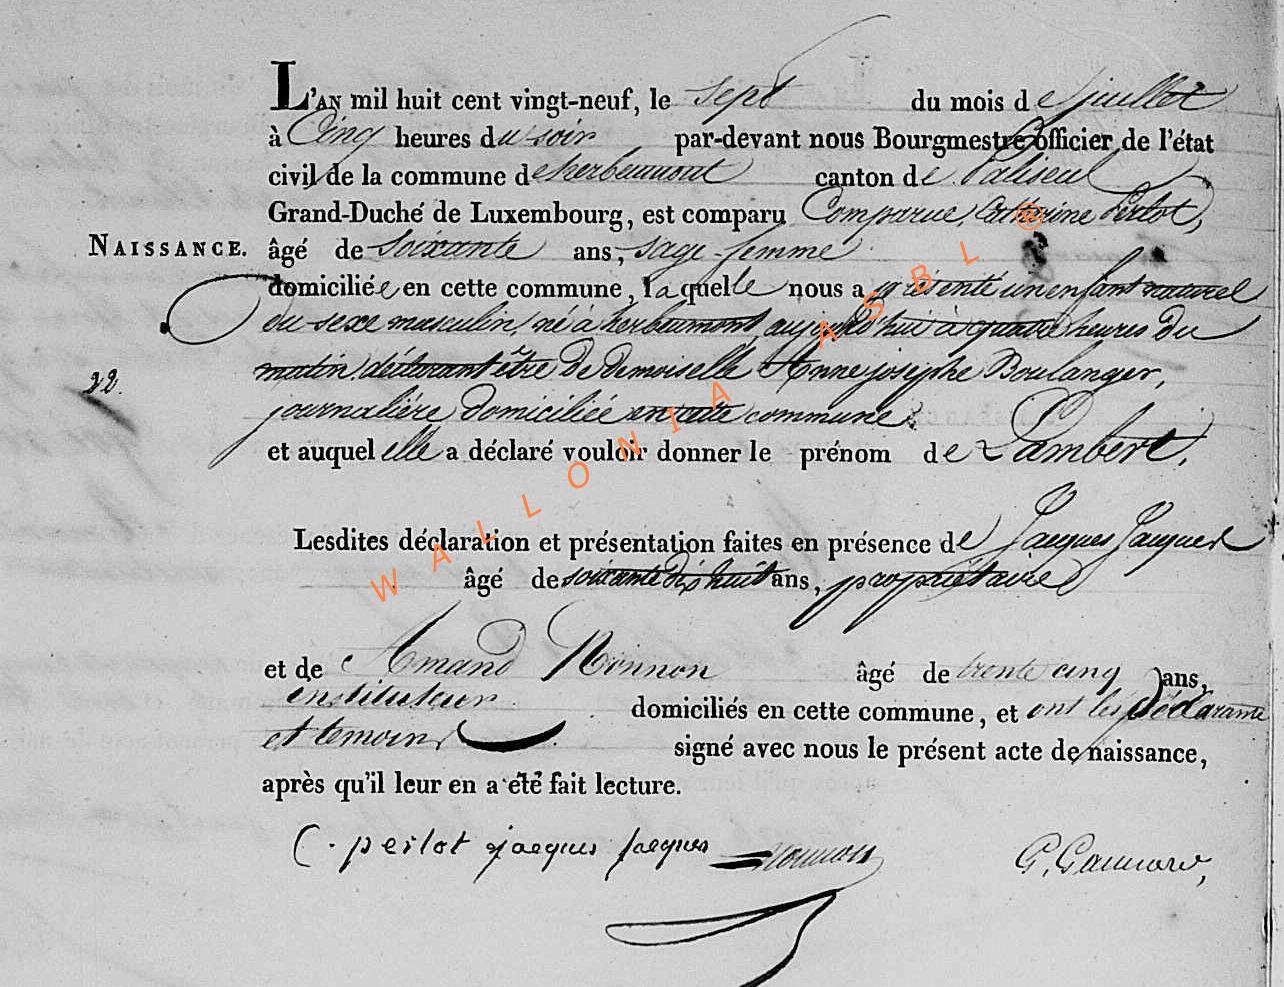 L'AN mil huit cent vingt-neuf, le sept du mois de juillet
à Cinq heures du soir par-devant nous Bourgmestre officier de l'état
civil de la commune de herbeumont canton de Paliseul
Grand-Duché de Luxembourg, est comparu Comparue, Catherine Perlot,
NAISSANCE. âgé de Soixante ans, sage-femme
domiciliée en cette commune, laquelle nous a présenté un enfant naturel
du sexe masculin, né à herbeumont, aujourd'hui à quatre heures du
22. matin déclarant être De demoiselle Anne josephe Boulanger,
journalière domiciliée en cette commune
et auquel elle a déclaré vouloir donner le prénom de Lambert.
Lesdites déclaration et présentation faites en présence de Jacques Jacques
âgé de soixante dix huit ans, propriétaire
et de Amand Monnon âgé de trente cinq ans,
instituteur domiciliés en cette commune, et ont les déclarante
et temoins signé avec nous le présent acte de naissance,
après qu'il leur en a été fait lecture.
C. perlot jacques jacques Monnon G. 
WALLONIA ASBL ®